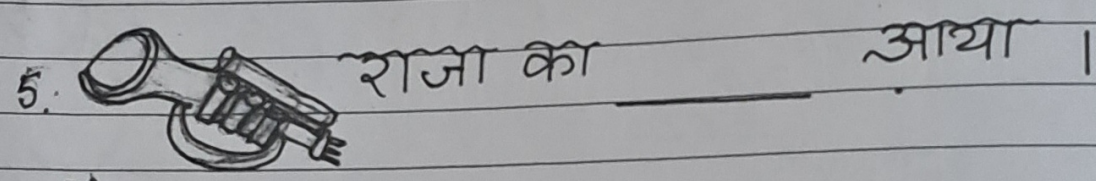 5. राजा का ______ आया ।